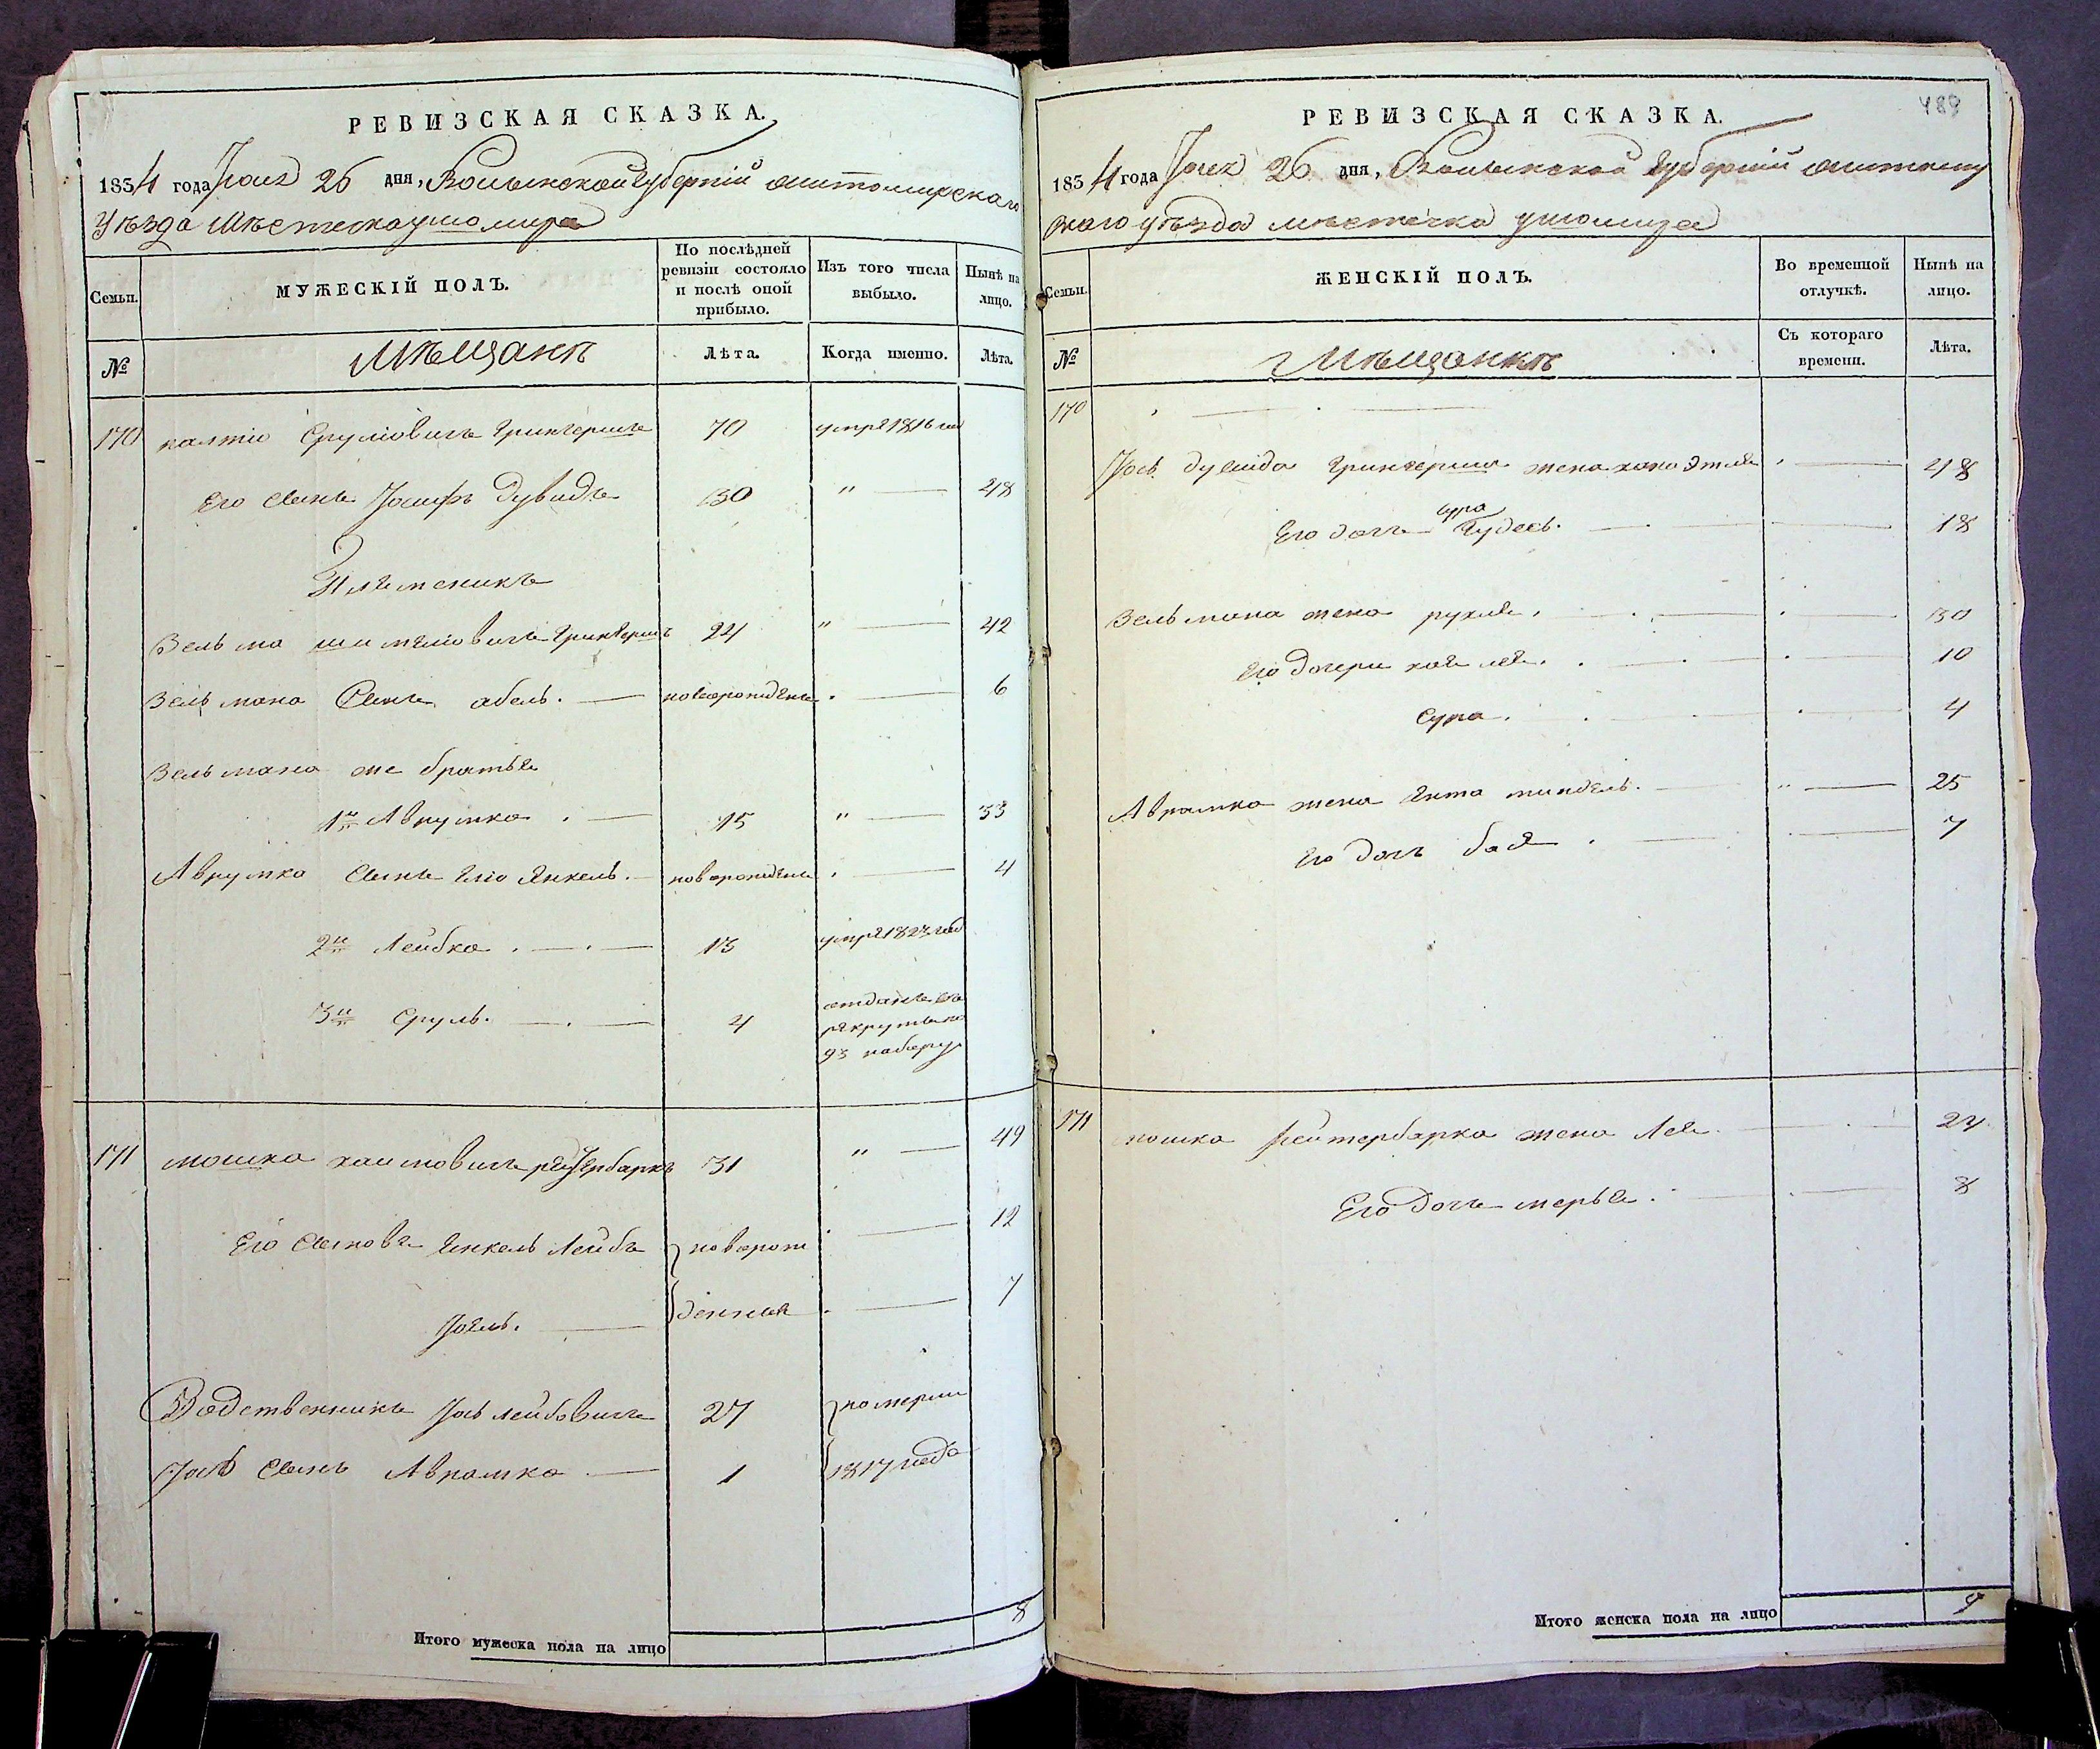 РЕВИЗСКАЯ СКАЗКА.
1834 года 26 дня, Волынской губерніи Житомирскаго
уѣзда мѣстечка Ушомира
Семьи.
МУЖЕСКІЙ ПОЛЪ.
По послѣдней ревизіи состояло и послѣ оной прибыло.
Изъ того числа выбыло.
Нынѣ на лицо.
№
Мѣщанъ
Лѣта.
Когда именно.
Лѣта.
170 Срулiовичъ 70 1816
Его сынъ Іосифъ Дувидъ 30 " 48
Племеникъ
Вельма 24 " 42
Вельмана сынъ абель. новорожденъ 6
Вельмана же братья
1й Аврумко 15 " 33
Аврумка сынъ его Янкель. новорожденъ 4
2й Лейбко 13 умре 1823 год
3й Сруль. 4 отданъ въ рекруты
93 набору
171 мошко хаимовичъ 31 " 49
Его сыновя Янкель Лейбъ новорож 12
Іоель. денныя 7
Родственникъ Іось Лейбовичъ 27 померли
Іося сынъ Аврамко 1 1817 года
Итого мужеска пола на лицо 8
489
РЕВИЗСКАЯ СКАЗКА.
1834 года 26 дня, Волынской губерніи Житомир
скаго уѣзда мѣстечка Ушомира
Семьи.
ЖЕНСКІЙ ПОЛЪ.
Во временной отлучкѣ.
Нынѣ на лицо.
№
Мѣщанкъ
Съ котораго времени.
Лѣта.
170
Іось Дувида жена хана Этля 48
сура
Его дочь Гудесь. 18
Вельмана жена рухля 30
Его дочери хая лея. 10
Сура. 4
Аврамка жена Янта миндель. " 25
Его дочь бася 7
171 мошка Рейтербарка жена Лея 24
Его дочь мерья. 8
Итого женска пола на лицо 9